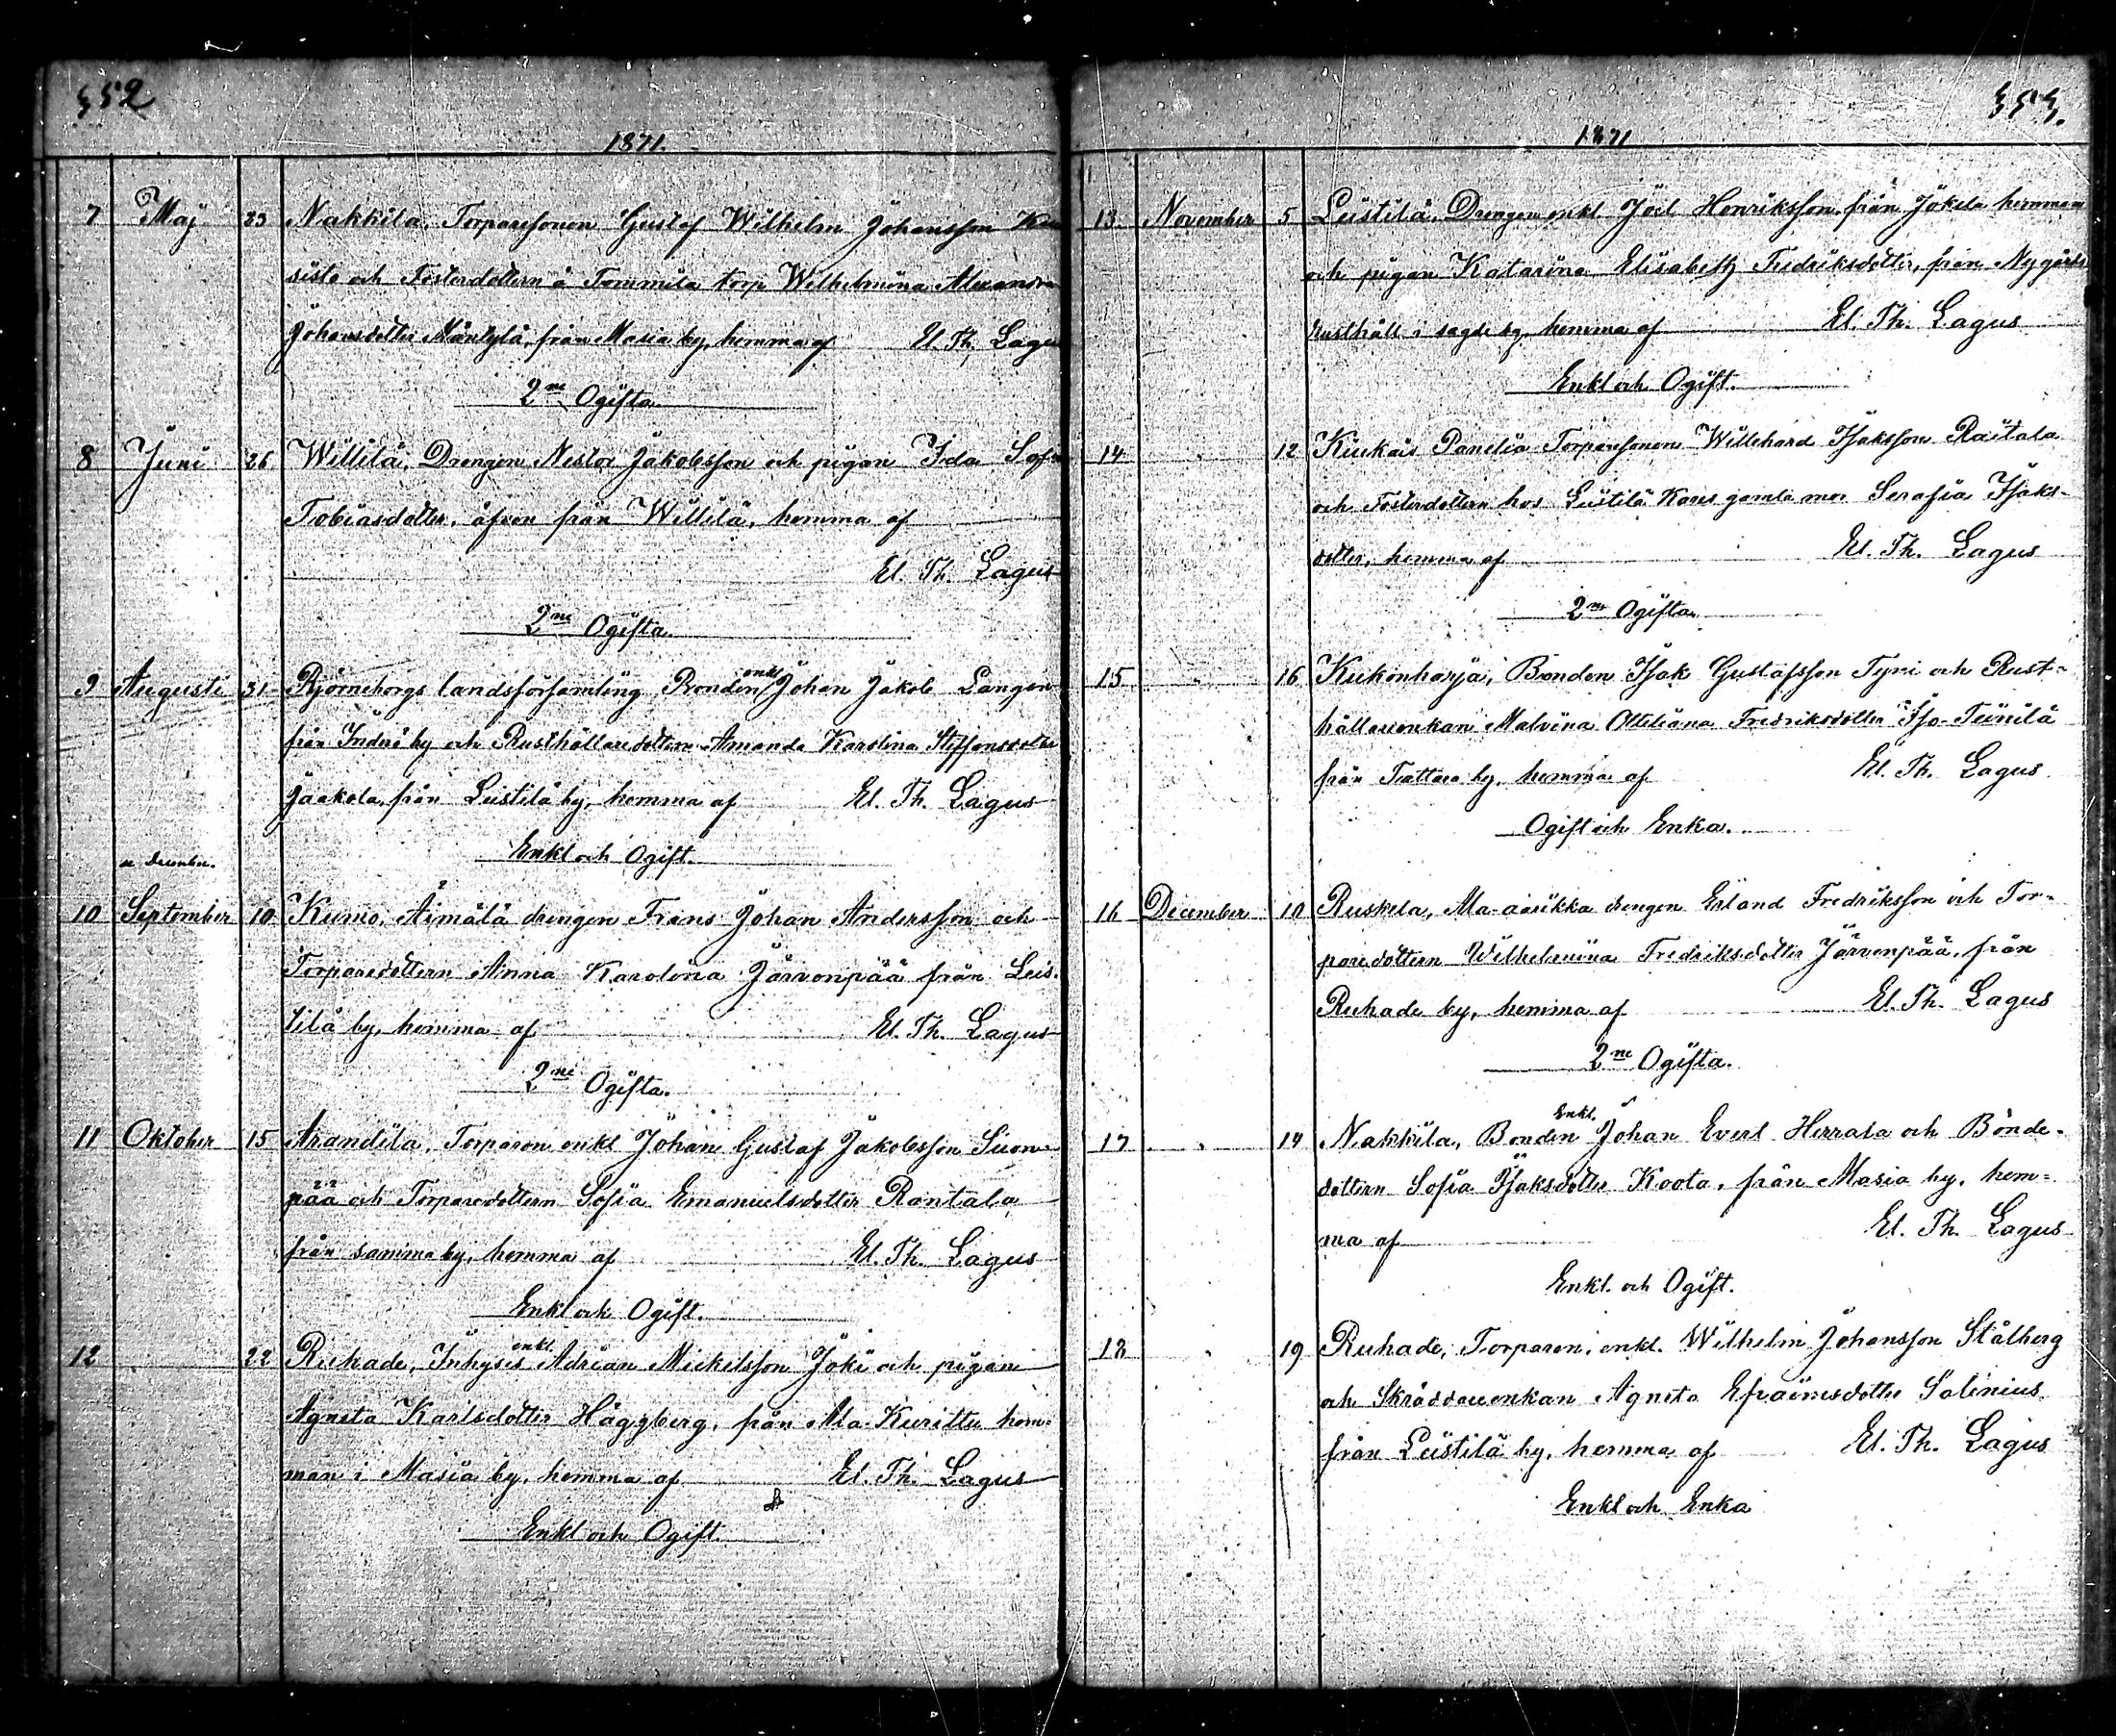 352
1871.
7 Maj 23 Nakkila, Torparesonen Gustaf Wilhelm Johansson
sisto och Fosterdottern å Tommila torp Wilhelmina Alexandra
Johansdotter Mäntylä, från Masia by, hemma af El. Th. Lagus
2ne Ogifta.
8 Juni 26 Willilä, Drengen Nestor Jakobsson och pigan Ida Sofia
Tobiasdotter, äfven från Willilä, hemma af
El. Th. Lagus
2ne Ogifta.
9 Augusti 31 Björneborgs landsförsamling, Bonden enkl. Johan Jakob Langen
från Inderö by och Rusthållaredottern Amanda Karolina Steffansdotter
Jaakola, från Leistilä by, hemma af El. Th. Lagus
Enkl och Ogift.
December.
10 September 10 Kumo, Äimälä drengen Frans Johan Andersson och
Torparedottern Anna Karolina Järvenpää från Leis-
tilä by, hemma af El. Th. Lagus
2ne Ogifta.
11 Oktober 15 Arandila, Torparen enkl Johan Gustaf Jakobsson Suon-
pää och Torparedottern Sofia Emanuelsdotter Rantala
från samma by, hemma af El. Th. Lagus
Enkl och Ogift.
12 22 Ruhade, Inhyses enkl. Adrian Mickelsson Joki och pigan
Agneta Karlsdotter Häggberg, från Ala-Kurittu hem-
man i Masia by, hemma af El. Th. Lagus
Enkl och Ogift.
353.
1871
13. November 5 Leistilä, Drengen enkl. Joel Henriksson från Jokela hemman
och pigan Katarina Elisabeth Fredriksdotter, från Nygårds
rusthåll i sagde by, hemma af El. Th. Lagus
Enkl och Ogift.
14 " 12 Kiukais Panelia Torparesonen Willehard Isaksson Raitala
och Fosterdottern hos Leistilä Kares gamla mor Serafia Isaks-
dotter, hemma af El. Th. Lagus
2ne Ogifta.
15 " 16 Kukonharja, Bonden Isak Gustafsson Tyni och Rust-
hållareenkan Malvina Ottiliana Fredriksdotter Iso-Tunila
från Tattara by, hemma af El. Th. Lagus
Ogift och Enka.
16 December 10 Ruskela, Ala-aarikka drengen Erland Fredriksson och Tor-
paredottern Wilhelmina Fredriksdotter Järvenpää, från
Ruhade by, hemma af El. Th. Lagus
2ne Ogifta.
17 " 14 Nakkila, Bonden Enkl. Johan Evert Herrala och Bonde-
dottern Sofia Isaksdotter Koota, från Masia by, hem-
ma af El. Th. Lagus
Enkl. och Ogift.
18 " 19 Ruhade, Torparen, enkl. Wilhelm Johansson Stålberg
och Skräddareenkan Agneta Efraimsdotter Salinius
från Leistilä by, hemma af El. Th. Lagus
Enkl och Enka